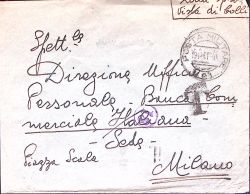 Posta di Coll
POSTA MILITARE
Spett.le
Direzione Ufficio
Personale - Banca Com
merciale Italiana
- Sede -
Piazza Scala
Milano
T